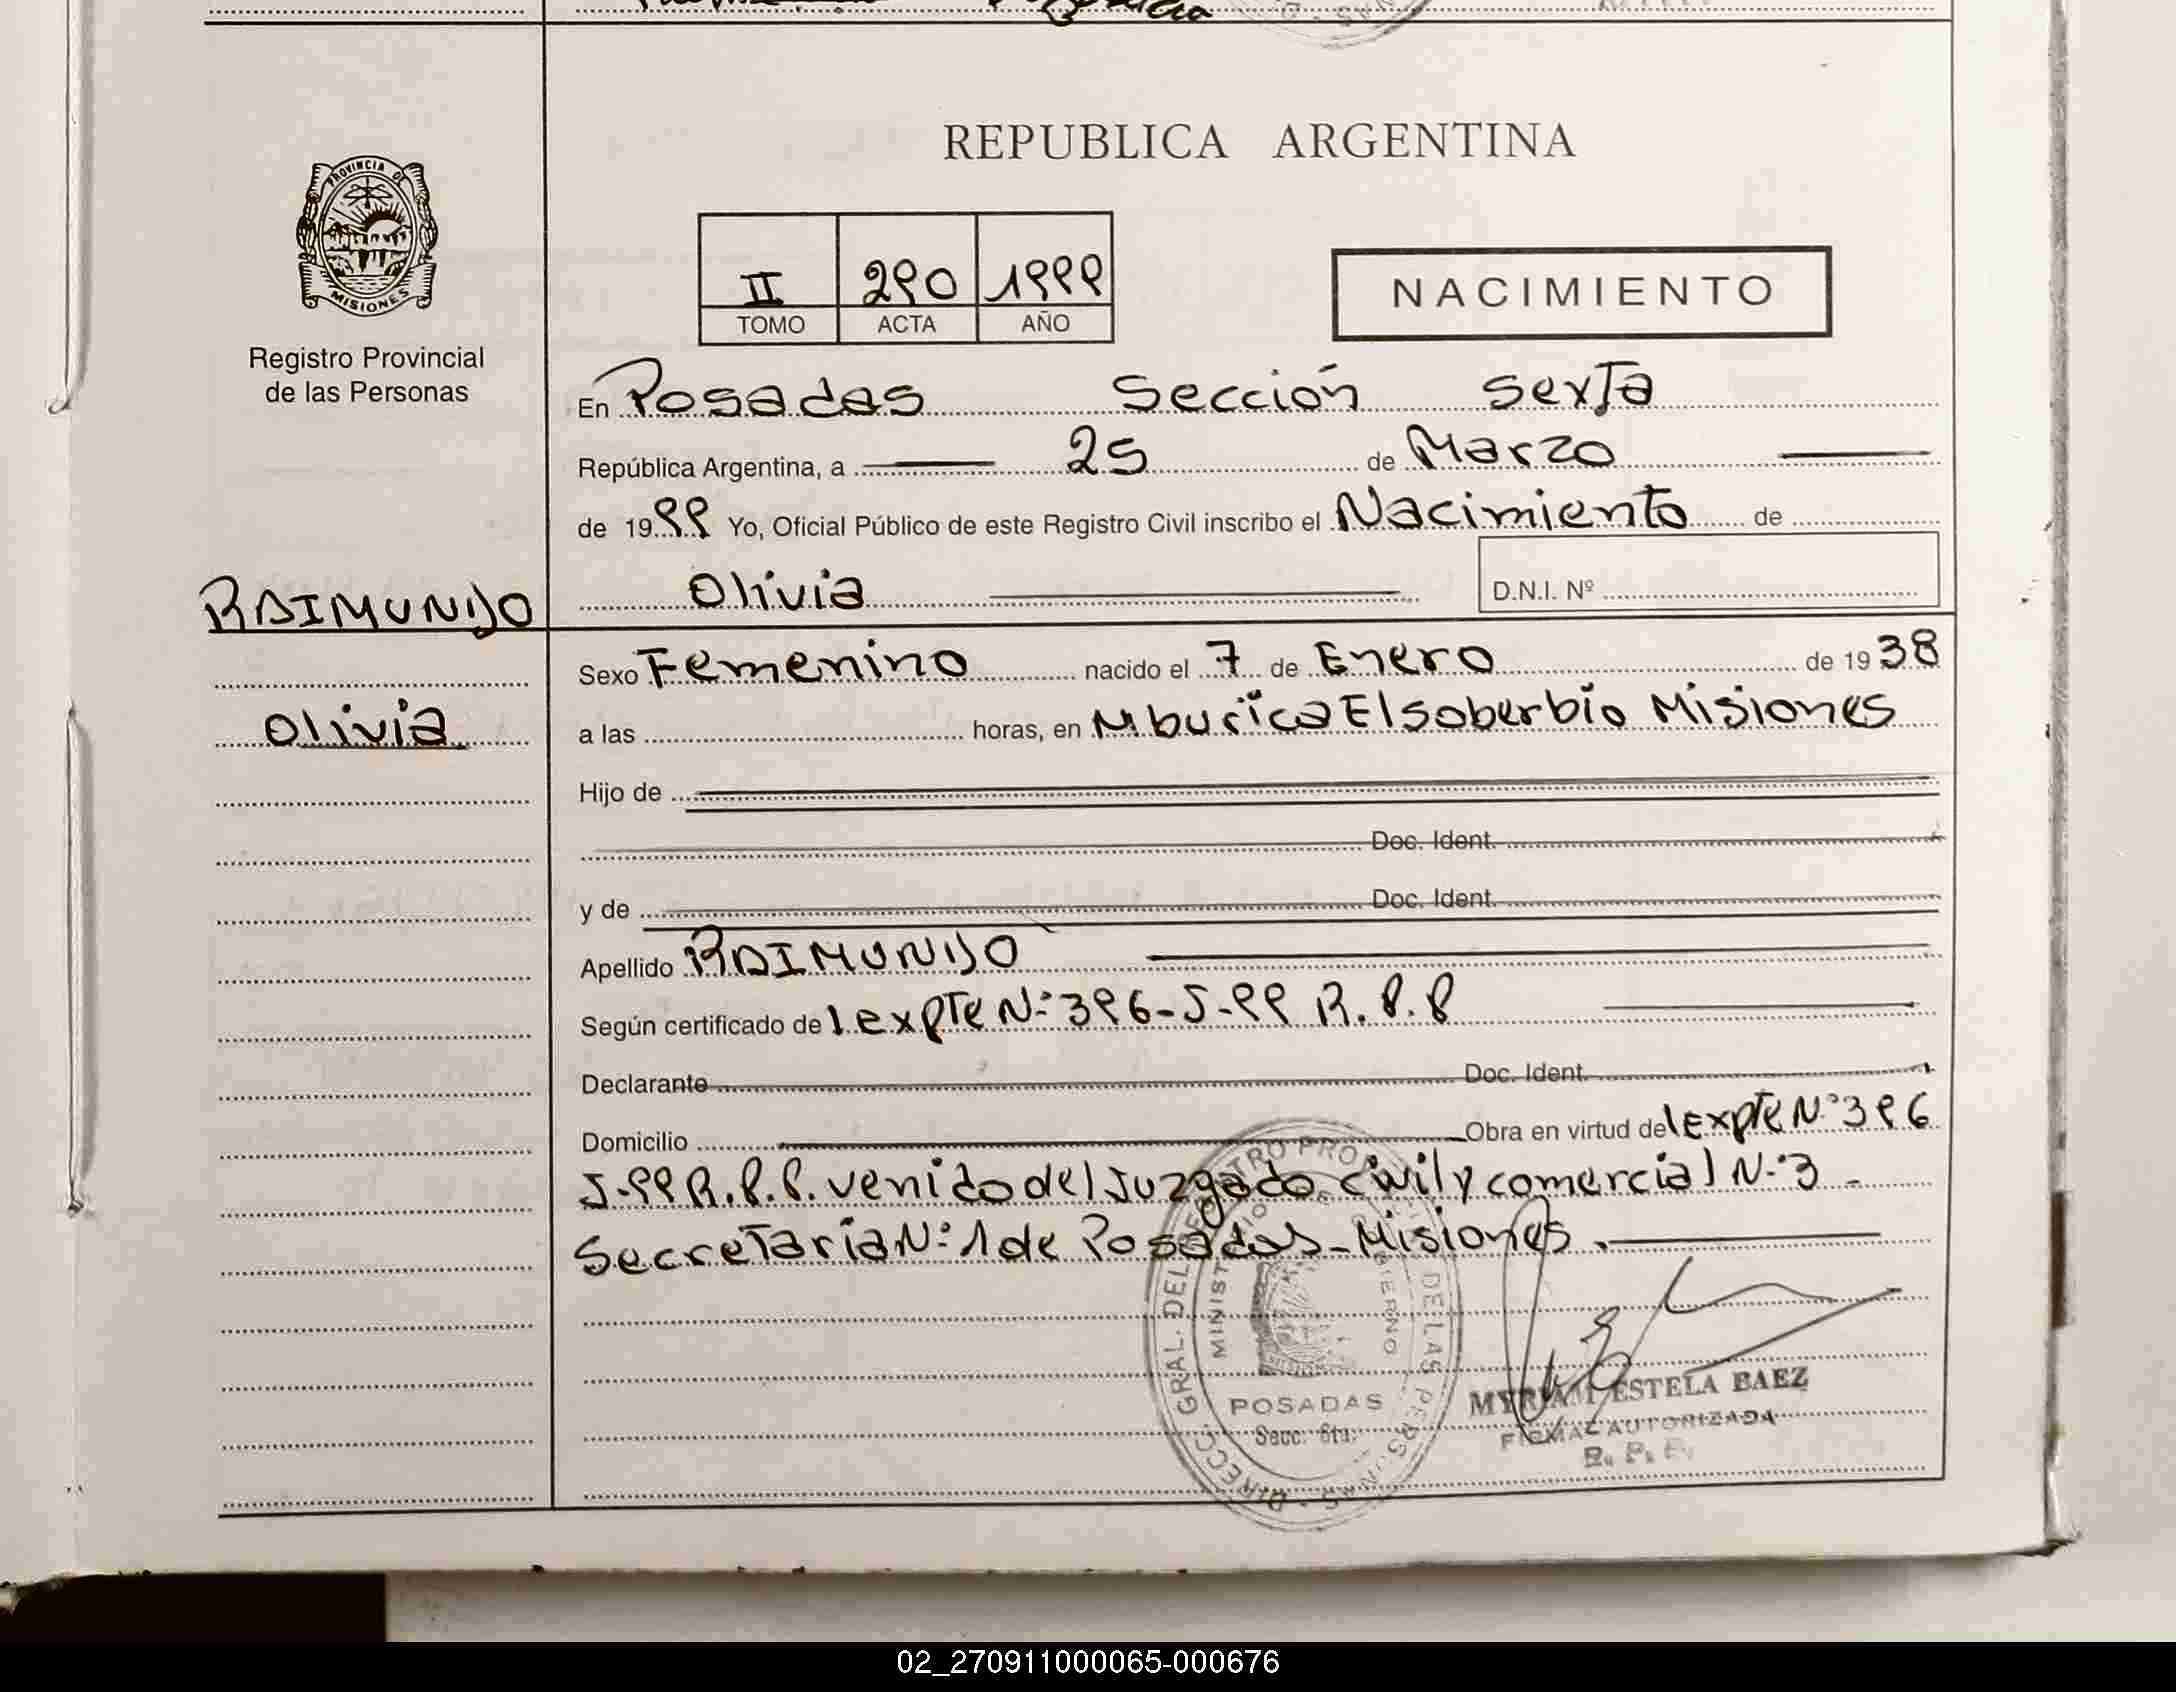 PROVINCIA DE
MISIONES
Registro Provincial
de las Personas
RAIMUNDO
Olivia
REPUBLICA ARGENTINA
II 290 1999
TOMO ACTA AÑO
NACIMIENTO
En Posadas Sección sexta
República Argentina, a 25 de Marzo
de 1999 Yo, Oficial Público de este Registro Civil inscribo el Nacimiento de
Olivia
D.N.I. Nº
Sexo Femenino nacido el 7 de Enero de 1938
a las horas, en Mburica El soberbio Misiones
Hijo de
Doc. Ident.
y de Doc. Ident.
Apellido RAIMUNDO
Según certificado del expte Nº 396-J-99 R.P.P
Declarante Doc. Ident.
Domicilio Obra en virtud del Expte Nº 396
J-99 R.P.P. venido del Juzgado Civil y comercial Nº 3 -
Secretaria Nº 1 de Posadas - Misiones.
DIRECC. GRAL. DEL REGISTRO PROVINCIAL DE LAS PERSONAS
POSADAS
Secc. 6ta.
MYRIAM ESTELA BAEZ
FIRMA AUTORIZADA
R. P. P.
02_270911000065-000676